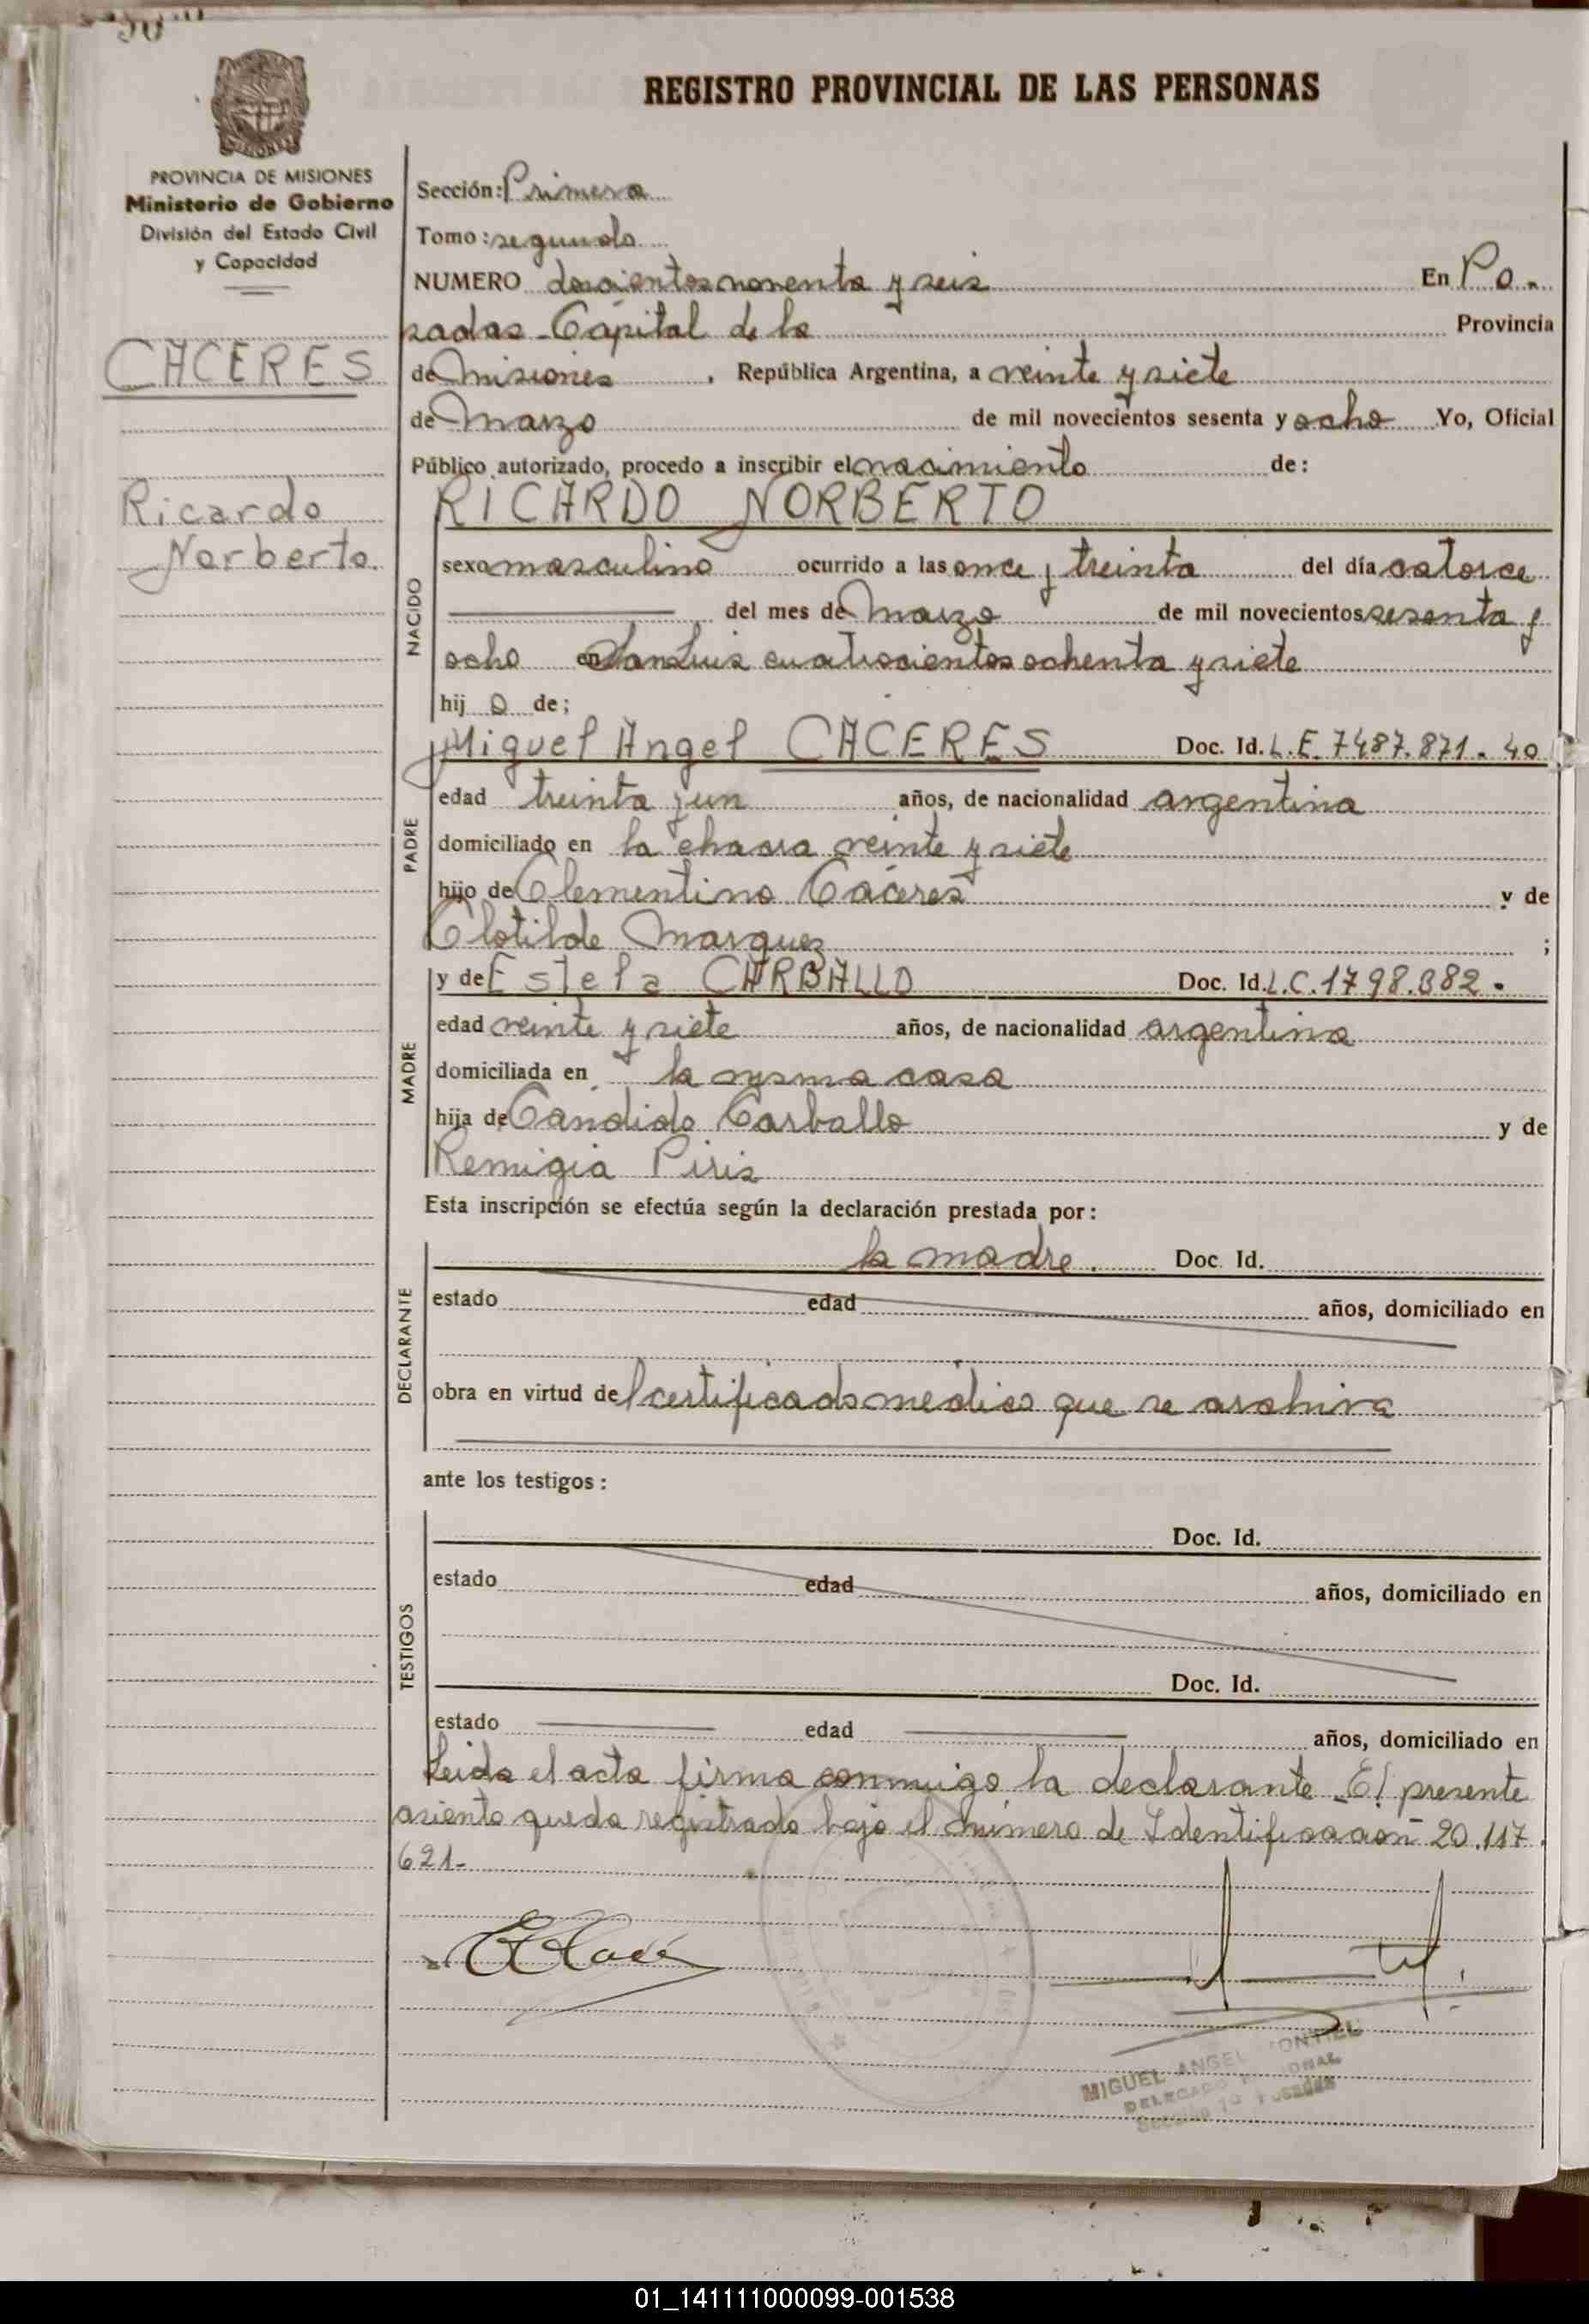 REGISTRO PROVINCIAL DE LAS PERSONAS
MISIONES
PROVINCIA DE MISIONES
Ministerio de Gobierno
División del Estado Civil
y Capacidad
CACERES
Ricardo
Norberto.
Sección: Primera
Tomo: segundo
NUMERO doscientos noventa y seis En Po-
sadas - Capital de la Provincia
de Misiones, República Argentina, a veinte y siete
de Marzo de mil novecientos sesenta y ocho Yo, Oficial
Público autorizado, procedo a inscribir el nacimiento de:
NACIDO
RICARDO NORBERTO
sexo masculino ocurrido a las once y treinta del día catorce
del mes de Marzo de mil novecientos sesenta y
ocho en San Luis cuatrocientos ochenta y siete
hijo de;
PADRE
Miguel Angel CACERES Doc. Id. L.E. 7487.871.- 40
edad treinta y un años, de nacionalidad argentina
domiciliado en la chacra veinte y siete
hijo de Clementino Cáceres y de
Clotilde Marquez ;
MADRE
y de Estela CARBALLO Doc. Id. L.C. 1798.382.
edad veinte y siete años, de nacionalidad argentina
domiciliada en la misma casa
hija de Candido Carballo y de
Remigia Piris
Esta inscripción se efectúa según la declaración prestada por:
DECLARANTE
la madre. Doc. Id.
estado edad años, domiciliado en
obra en virtud del certificado medico que se archiva
ante los testigos:
TESTIGOS
Doc. Id.
estado edad años, domiciliado en
Doc. Id.
estado edad años, domiciliado en
Leida el acta firma conmigo la declarante - El presente
asiento queda registrado bajo el número de Identificacion 20.117.
621-
MIGUEL ANGEL
DELEGADO
Sección 1a Posadas
01_141111000099-001538